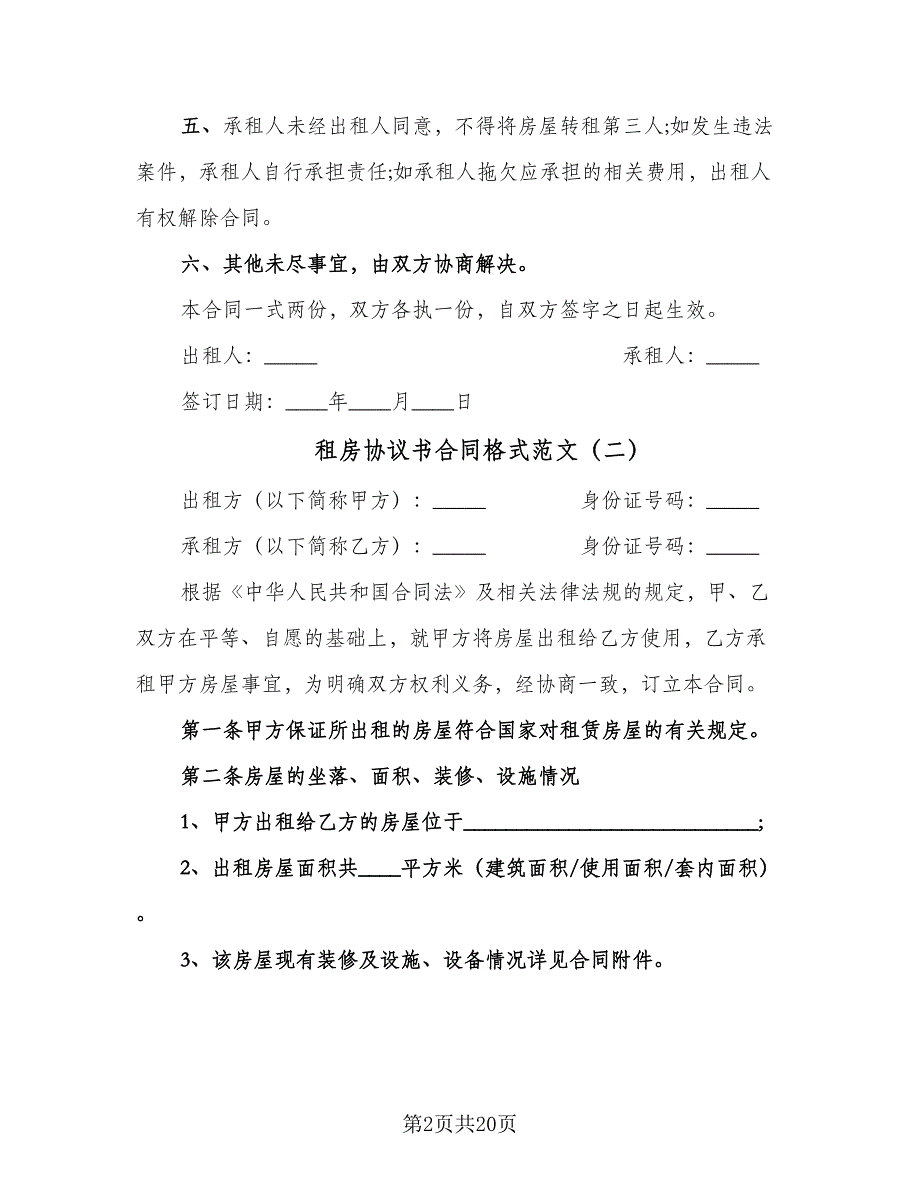 五、承租人未经出租人同意，不得将房屋转租第三人;如发生违法
案件，承租人自行承担责任;如承租人拖欠应承担的相关费用，出租人
有权解除合同。
六、其他未尽事宜，由双方协商解决。
本合同一式两份，双方各执一份，自双方签字之日起生效。
出租人：_____ 承租人：_____
签订日期：____年____月____日
租房协议书合同格式范文（二）
出租方（以下简称甲方）：_____ 身份证号码：_____
承租方（以下简称乙方）：_____ 身份证号码：_____
根据《中华人民共和国合同法》及相关法律法规的规定，甲、乙
双方在平等、自愿的基础上，就甲方将房屋出租给乙方使用，乙方承
租甲方房屋事宜，为明确双方权利义务，经协商一致，订立本合同。
第一条甲方保证所出租的房屋符合国家对租赁房屋的有关规定。
第二条房屋的坐落、面积、装修、设施情况
1、甲方出租给乙方的房屋位于____________________________;
2、出租房屋面积共____平方米（建筑面积/使用面积/套内面积）
。
3、该房屋现有装修及设施、设备情况详见合同附件。
第2页共20页